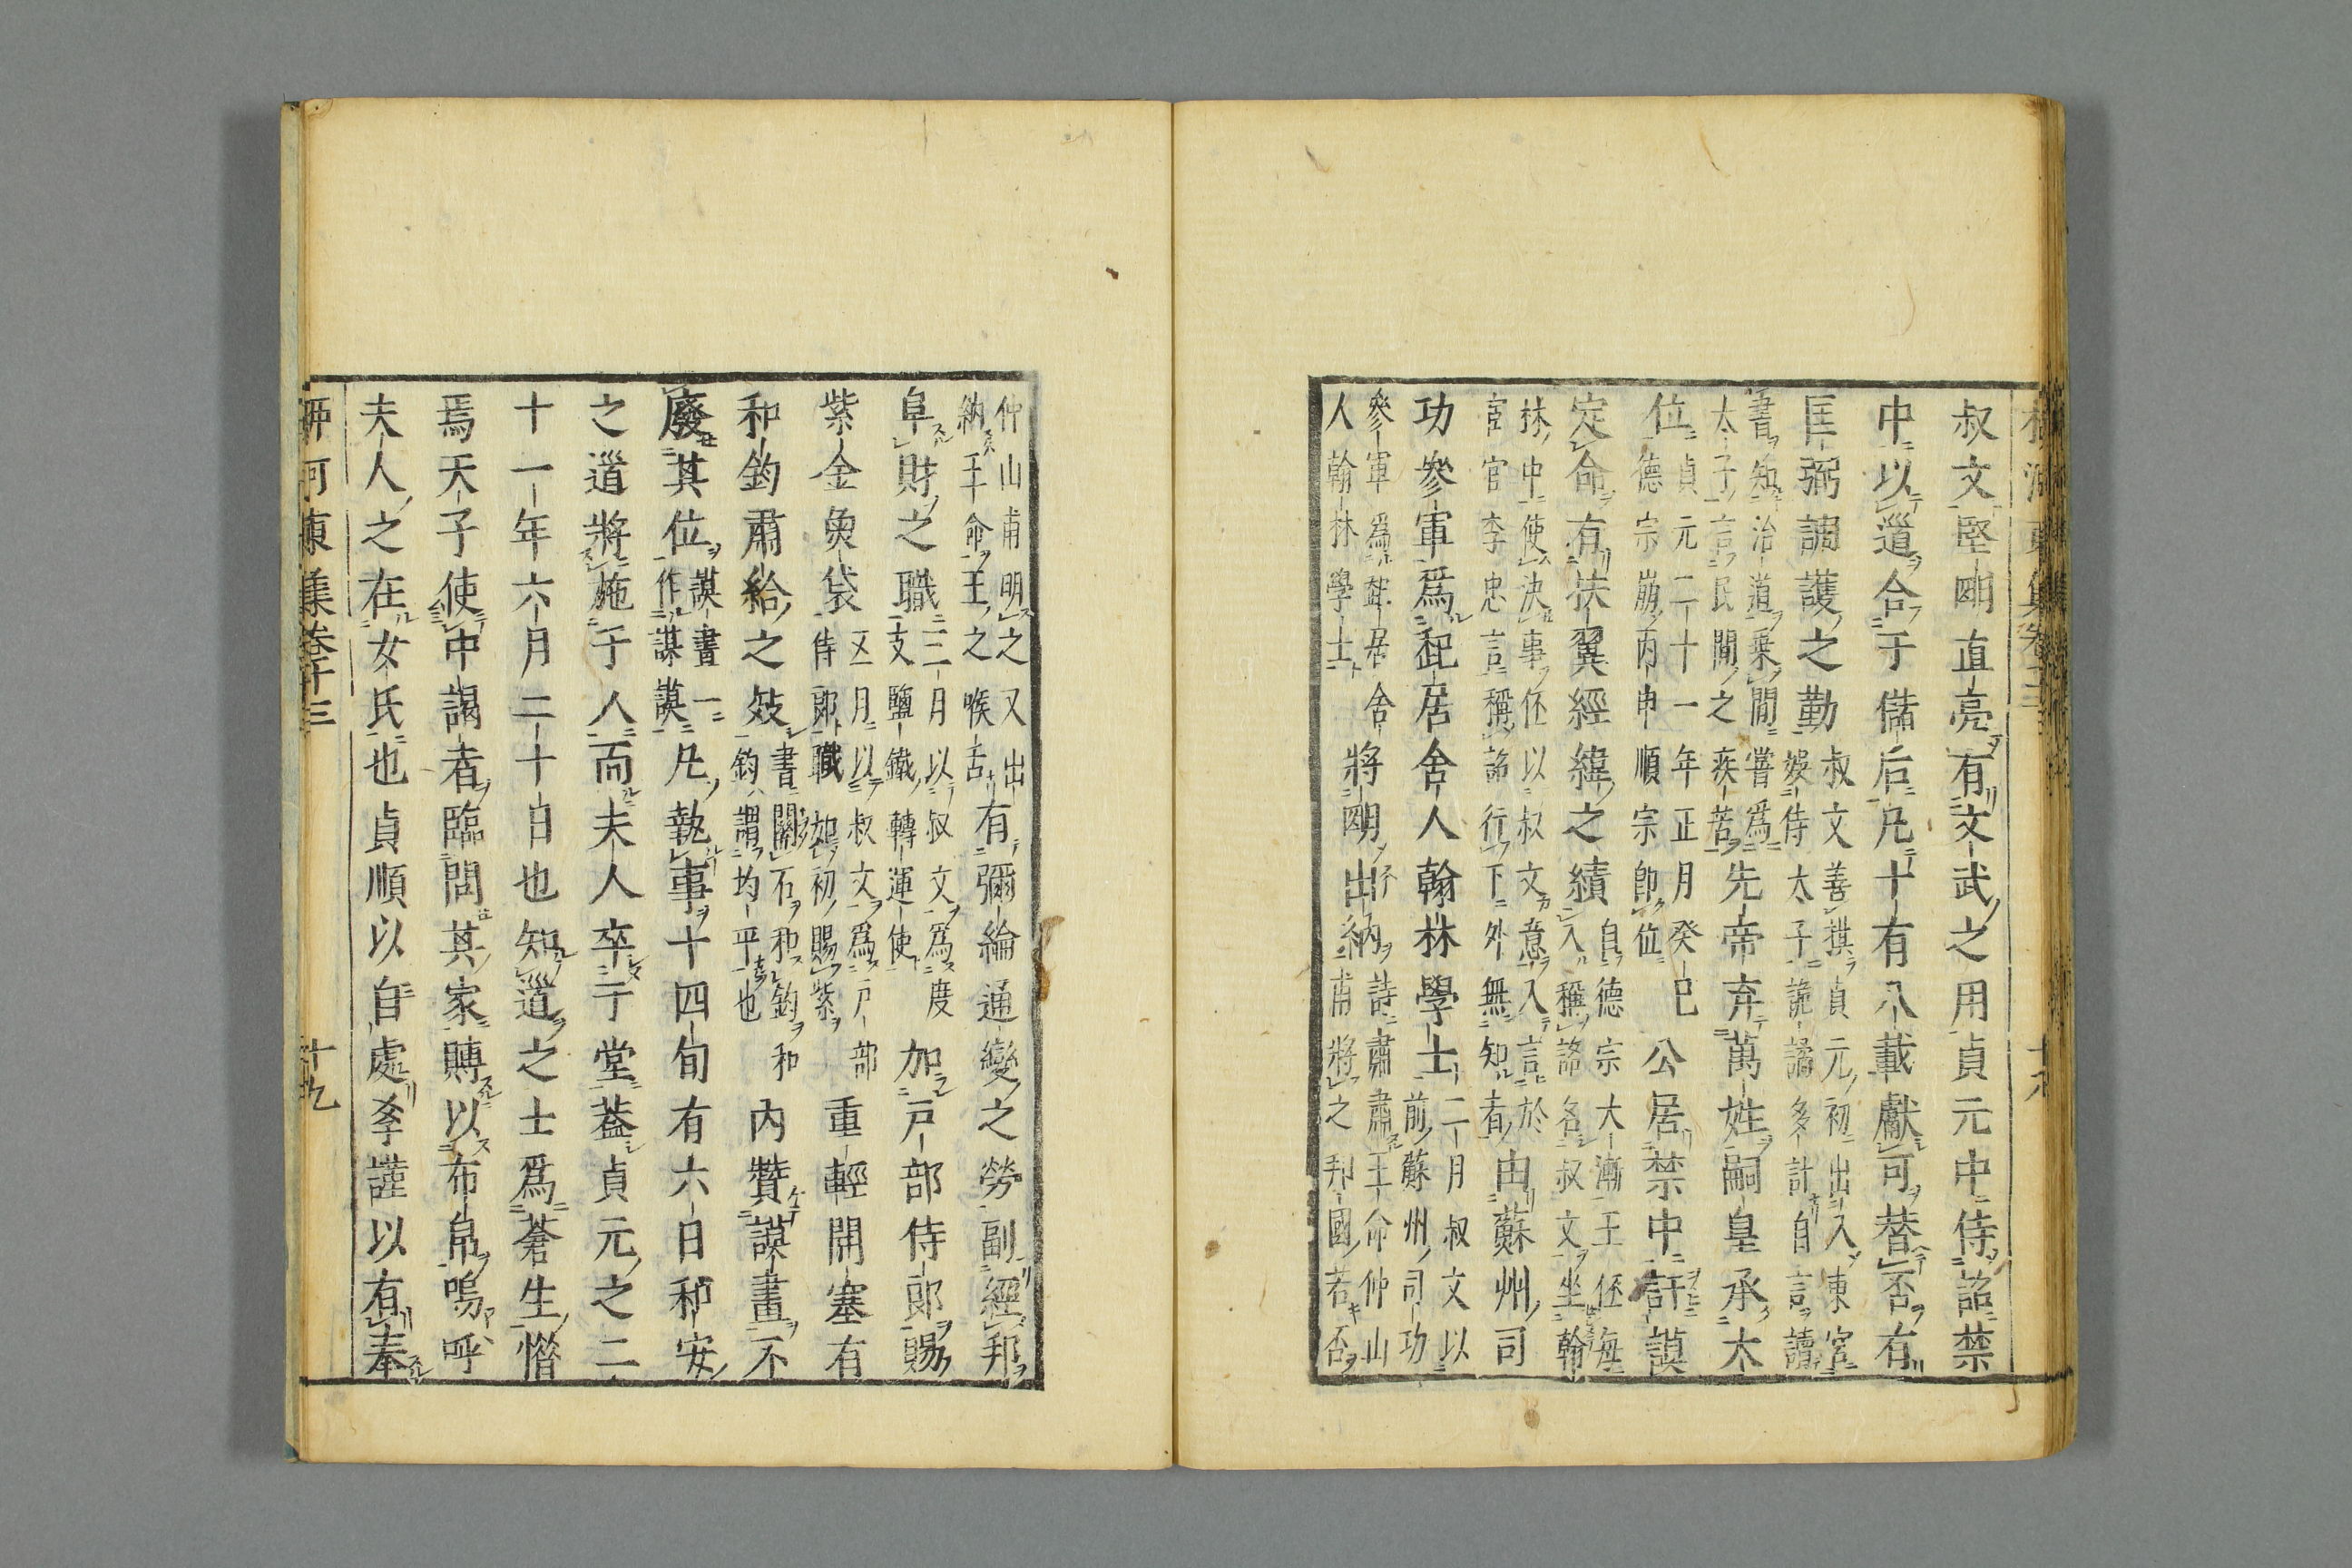 叔文堅明直亮有文武之用貞元中侍詔禁
中以道合于儲后凡十有八載獻可替否有
匡弼調護之勤叔文善棋貞元初出入東宮
娛侍太子詭譎多計自言讀
書知治道乘間嘗爲
太子言民間之疾苦先帝弃萬姓嗣皇承大
位貞元二十一年正月癸巳
德宗崩丙申順宗卽位公居禁中訏謨
定命有扶翼經緯之績自德宗大漸王伾每
入稱詔召叔文坐翰
林中使決事伾以叔文意入言於
宦官李忠言稱詔行下外無知者由蘇州司
功參軍爲起居舍人翰林學士二月叔文以
前蘇州司功
參軍爲起居舍
人翰林學士將明出納詩肅肅王命仲山
甫將之邦國若否
仲山甫明之又出
納王命王之喉舌有彌綸通變之勞副經邦
阜財之職三月以叔文爲度
支鹽鐵轉運使加戶部侍郎賜
紫金魚袋五月以叔文爲戶部
侍郎職如初賜紫重輕開塞有
和鈞肅給之效書關石和鈞和
鈞謂均平也內贊謨畫不
廢其位謨書一
作謀謨凡執事十四旬有六日利安
之道將施于人而夫人卒于堂葢貞元之二
十一年六月二十日也知道之士爲蒼生惜
焉天子使中謁者臨問其家賻以布帛嗚呼
夫人之在女氏也貞順以自處孝謹以有奉
柳河東集卷十三 十九